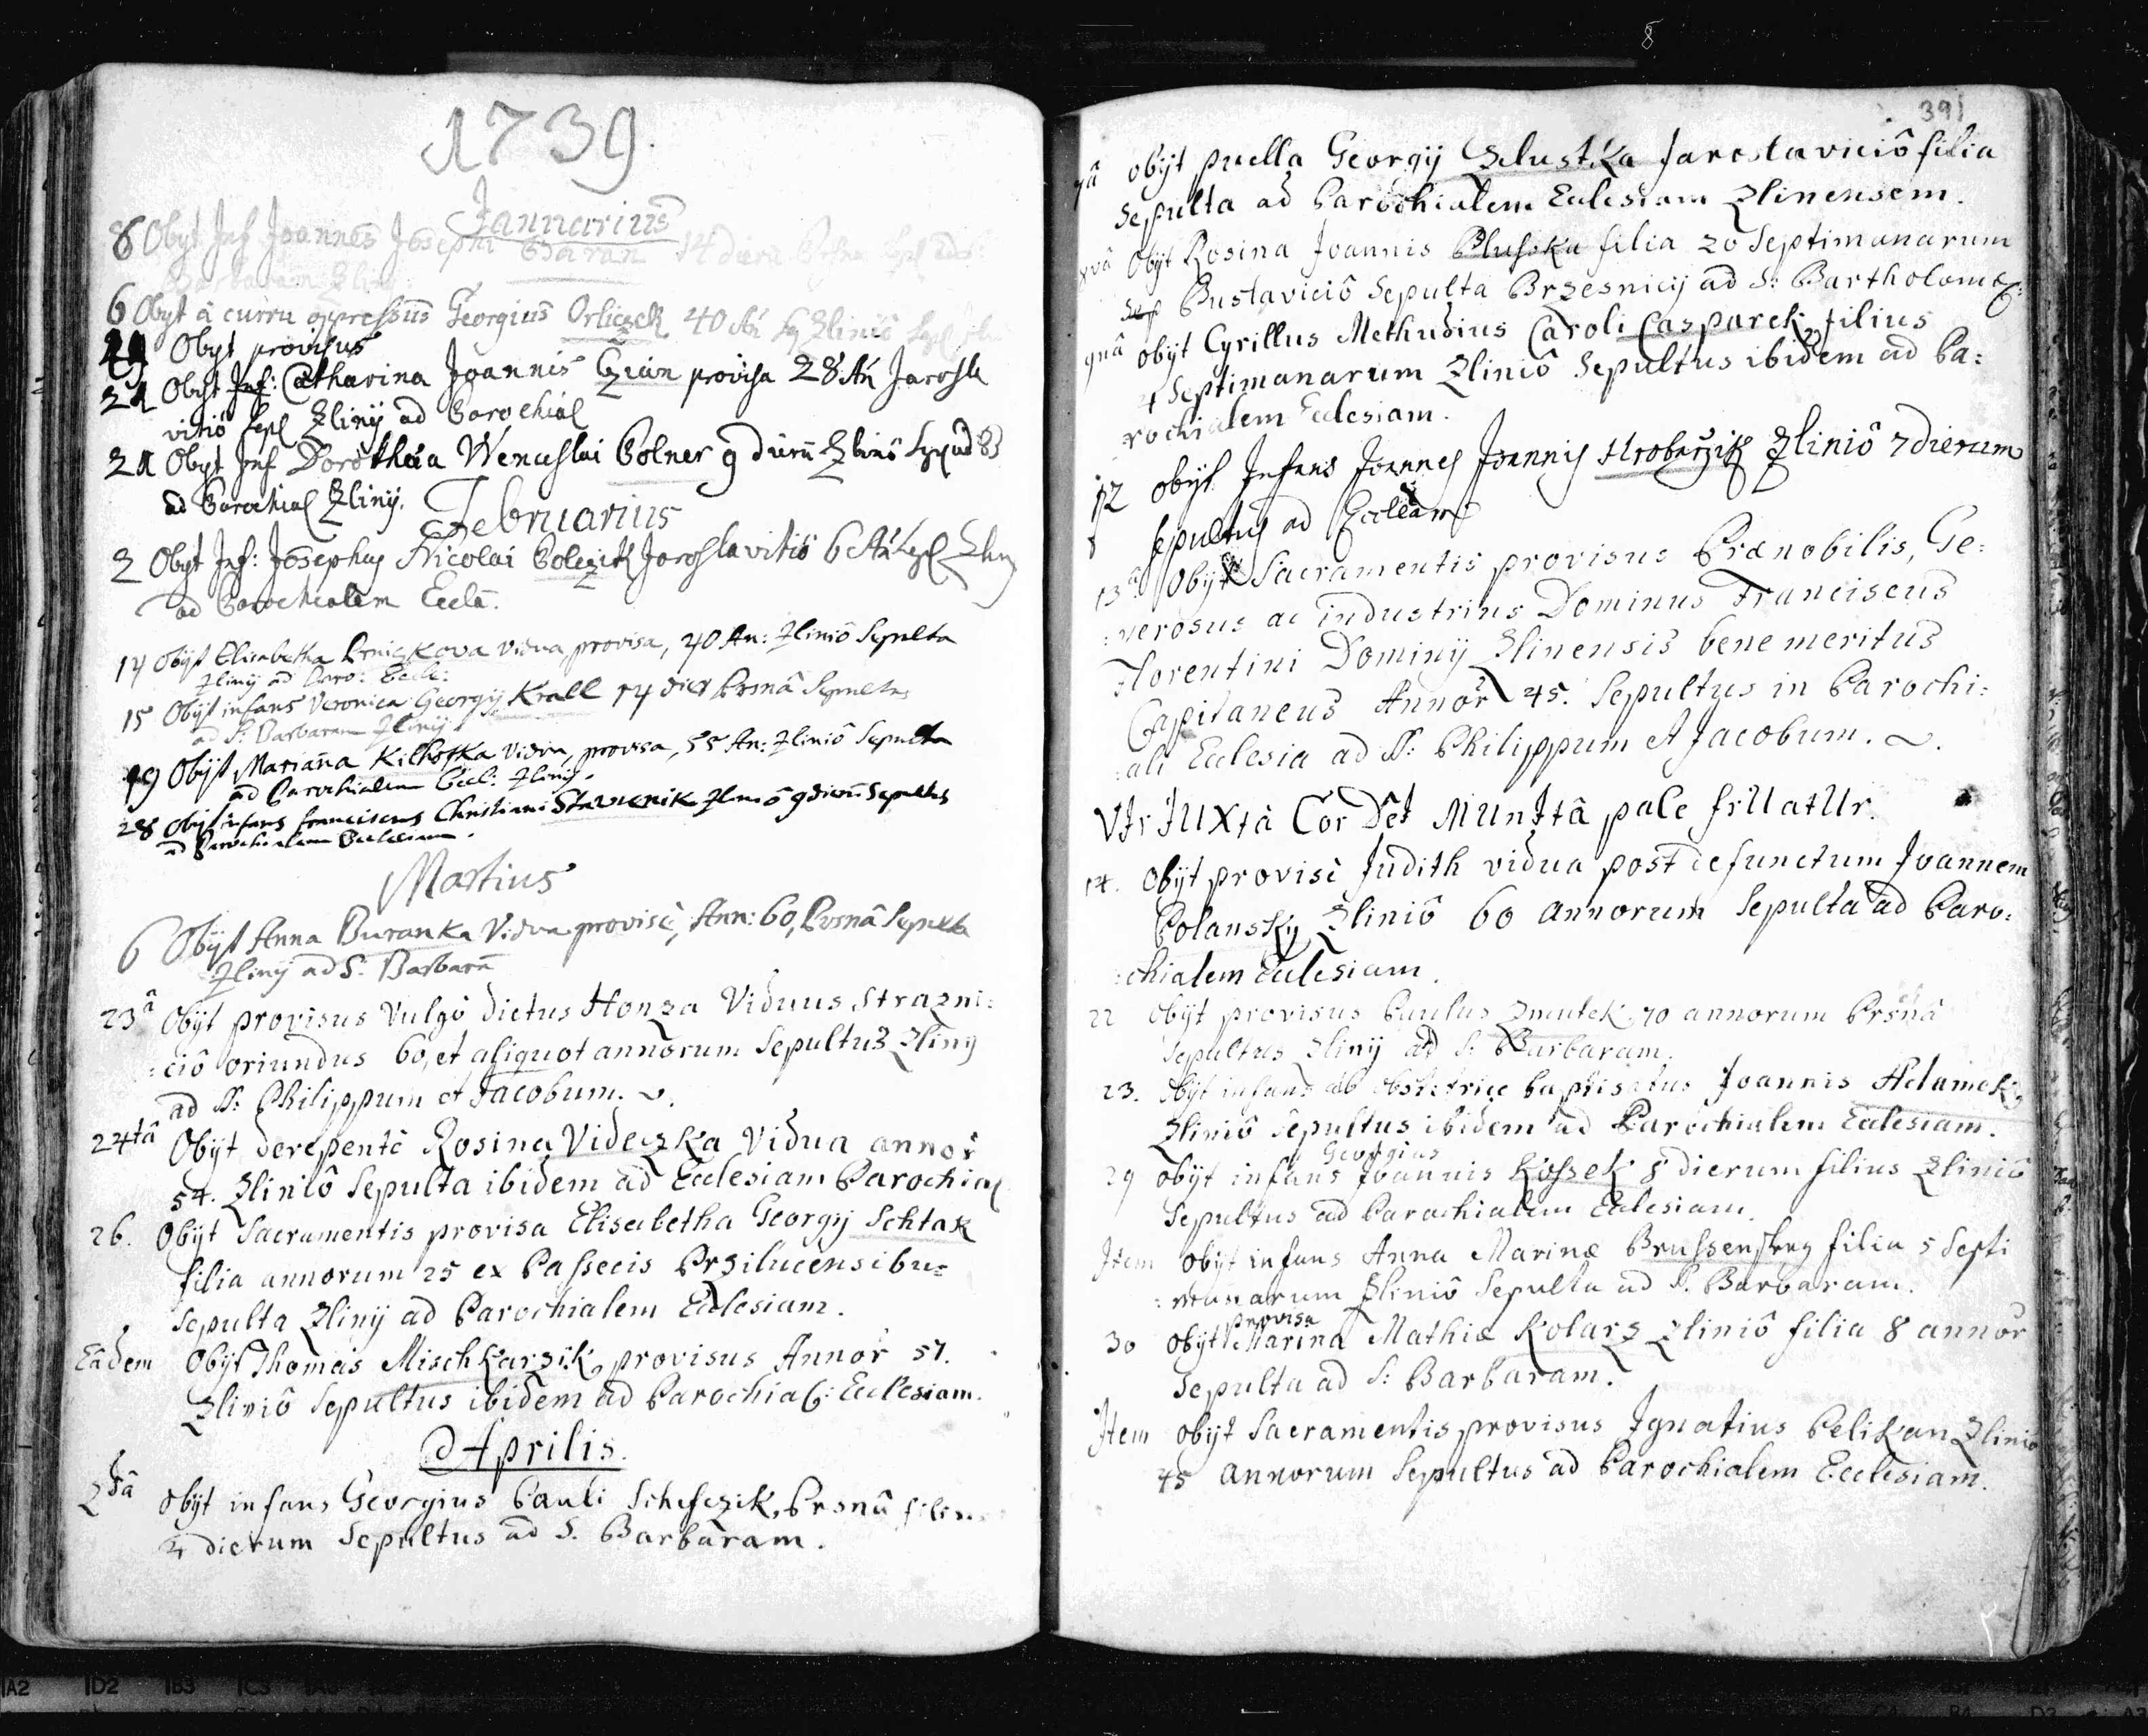 1739.
Januarius
8 Obyt Inf Joannes Josephi Baran 14 dieru
Barbaram Zliny
6 Obyt â curru oppressus Georgius Orliczek 40 An Zliniô
Obyt provisus
21 Obyt Inf: Catharina Joannis provisa 28 An Jarosla
vitiô Sepl Zlinij ad Parochial
Obyt Inf Dorothea Wenceslai Polner 9 dieru Zliniô
ad Parochial Zlinij.
Februarius
2 Obyt Inf: Josephus Nicolai Polczik Jaroslavitiô 6 An Sepl Zliny
ad Parochialem Eccla.
14 Obijt Elisabetha vidua, provisa, 40 An: Zliniô Sepulta
Zlinij ad Paro: Eccle:
15 Obijt infans Veronica Georgij Krall 14 dier Prsnâ Sepulta
ad S: Barbaram Zlinij
19 Obijt Marianna Kilhofka Vidua, provisa, 55 An: Zliniô Sepulta
ad Parochialem Eccl: Zlinij.
28 Obijt infans franciscus Christiani Stavenik Zliniô 9 dieru Sepultus
ad Parochialem Ecclesiam.
Martius
6 Obijt Anna Buranka Vidua provisè, Ann: 60, Prsnâ Sepulta
Zlinij ad S: Barbarā
23â Obijt provisus Vulgò dictus Honza Viduus Strazni:
:ciô oriundus 60, et aliquot annorum Sepultus Zlinij
ad SS: Philippum et Jacobum.
24tâ Obijt derepentè Rosina Videczka Vidua annor
54. Zliniô Sepulta ibidem ad Ecclesiam Parochial
26. Obijt Sacramentis provisa Elisabetha Georgij Schtak
filia annorum 25 ex Passecis Przilucensibu=
Sepulta Zlinij ad Parochialem Ecclesiam.
Eâdem Obijt Thomas Mischkarzik, provisus Annor 57.
Zliniô Sepultus ibidem ad Parochial: Ecclesiam.
Aprilis.
2dâ obijt infans Georgius Pauli Schefczik, Prsnâ
4 dierum Sepultus ad S. Barbaram.
391
7â obijt puella Georgij Jaroslaviciô filia
Sepulta ad Parochialem Ecclesiam Zlinensem.
Obijt Rosina Joannis Pluska filia 20 Septimanarum
Sepulta Brzesnicij ad S: Bartholom
obijt Cyrillus Methudius Caroli Casparek, filius
4 Septimanarum Zliniô Sepultus ibidem ad Pa:
rochialem Ecclesiam.
12 obijt Infans Joannes Joannis Hrobarzik Zliniô 7 dierum
Sepultus ad Ecclam
13â Obijt Sacramentis provisus Prænobilis, Ge:
:nerosus ac industrius Dominus Franciscus
Florentini Dominij Zlinensis bene meritus
Capitaneus Annor 45. Sepultus in Parochi:
:ali Ecclesia ad SS: Philippum et Jacobum.
VIr IUXtà Cor Det MUnItâ pale frUatUr.
14. obijt provisè Judith vidua post defunctum Joannem
Polansky Zliniô 60 annorum Sepulta ad Paro:
:chialem Ecclesiam.
22 obijt provisus Paulus Zmutek 70 annorum Prsnâ
Sepultus Zlinij ad S: Barbaram.
23. obijt infans ab obstetrice baptisatus Joannis Adamek,
Zliniô Sepultus ibidem ad Parochialem Ecclesiam.
Georgius
29 obijt infans Joannis Kossek 8 dierum filius Zliniô
Sepultus ad Parochialem Ecclesiam.
Item obijt infans Anna Marinæ filia 5 Septi
:manarum Zliniô Sepulta ad S. Barbaram.
provisa
30 obijt Marina Mathiæ Kolarz Zliniô filia 8 annor
Sepulta ad S: Barbaram.
Item obijt Sacramentis provisus Ignatius Pelikan Zliniô
45 annorum Sepultus ad Parochialem Ecclesiam.